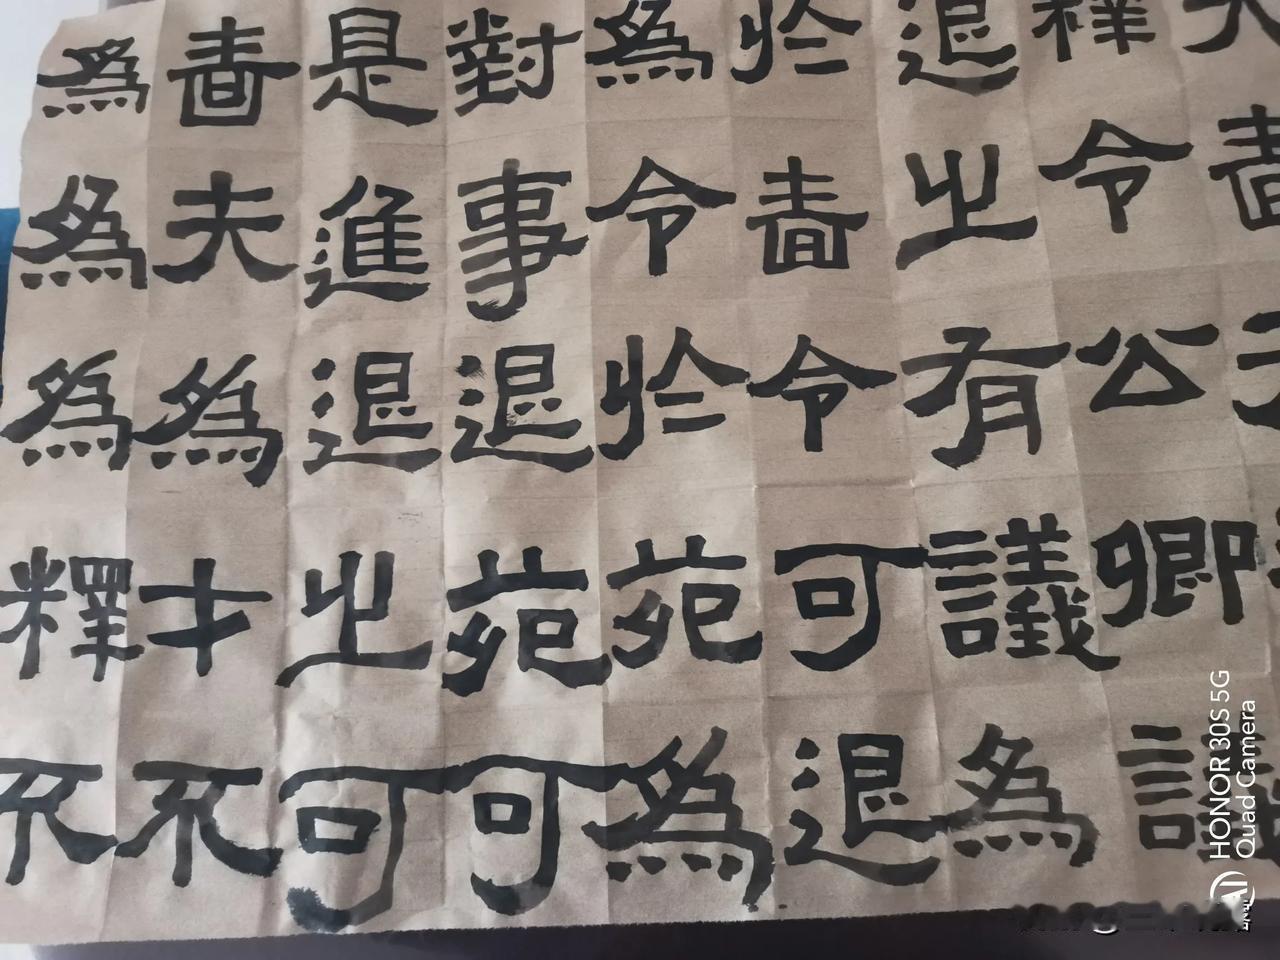 嗇
釋令公卿議
退之有議為
於嗇令可退
為令於苑為
對事退苑可
是進退之可
嗇夫為才不
為為為釋不
HONOR 30S 5G
Quad Camera